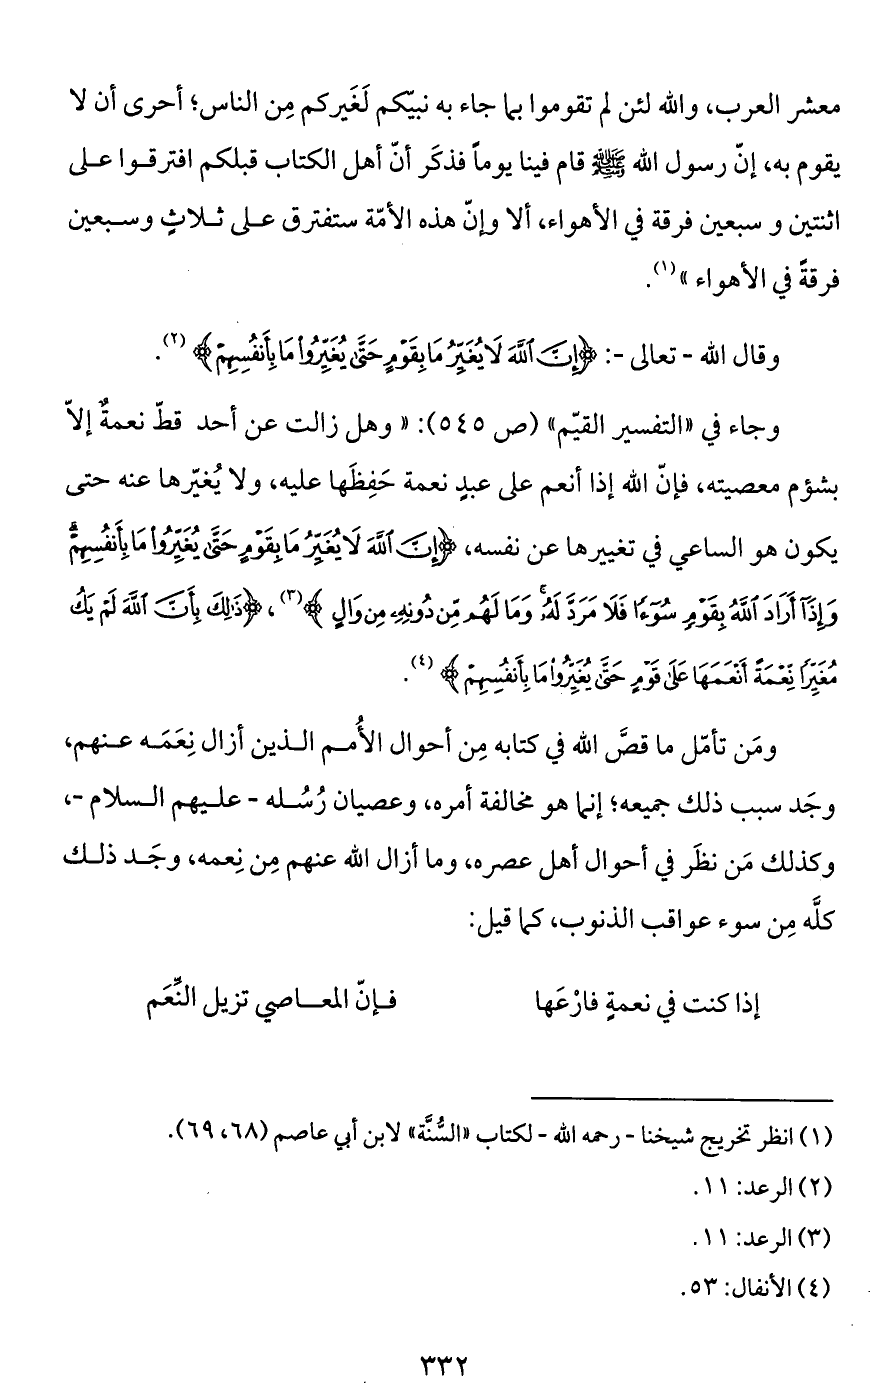 معشر العرب، والله لئن لم تقوموا بما جاء به نبيّكم لَغَيركم مِن الناس؛ أحرى أن لا
يقوم به، إنّ رسول الله ﷺ قام فينا يوماً فذكَر أنّ أهل الكتاب قبلكم افترقوا على
اثنتين و سبعين فرقة في الأهواء، ألا وإنّ هذه الأمّة ستفترق على ثلاثٍ وسبعين
فرقةً في الأهواء »(١).
وقال الله - تعالى -: ﴿إِنَّ ٱللَّهَ لَا يُغَيِّرُ مَا بِقَوْمٍ حَتَّىٰ يُغَيِّرُوا۟ مَا بِأَنفُسِهِمْ﴾ (٢).
وجاء في «التفسير القيّم» (ص ٥٤٥): « وهل زالت عن أحد قطّ نعمةٌ إلاّ
بشؤم معصيته، فإنّ الله إذا أنعم على عبدٍ نعمة حَفِظَها عليه، ولا يُغيّرها عنه حتى
يكون هو الساعي في تغييرها عن نفسه، ﴿إِنَّ ٱللَّهَ لَا يُغَيِّرُ مَا بِقَوْمٍ حَتَّىٰ يُغَيِّرُوا۟ مَا بِأَنفُسِهِمْ ۗ
وَإِذَآ أَرَادَ ٱللَّهُ بِقَوْمٍ سُوٓءًا فَلَا مَرَدَّ لَهُۥ ۚ وَمَا لَهُم مِّن دُونِهِۦ مِن وَالٍ ﴾(٣)، ﴿ذَٰلِكَ بِأَنَّ ٱللَّهَ لَمْ يَكُ
مُغَيِّرًا نِّعْمَةً أَنْعَمَهَا عَلَىٰ قَوْمٍ حَتَّىٰ يُغَيِّرُوا۟ مَا بِأَنفُسِهِمْ ﴾ (٤).
ومَن تأمّل ما قصَّ الله في كتابه مِن أحوال الأُمم الذين أزال نِعَمَه عنهم،
وجَد سبب ذلك جميعه؛ إنما هو مخالفة أمره، وعصيان رُسُله - عليهم السلام -،
وكذلك مَن نظَر في أحوال أهل عصره، وما أزال الله عنهم مِن نِعمه، وجَد ذلك
كلَّه مِن سوء عواقب الذنوب، كما قيل:
إذا كنت في نعمةٍ فارْعَها فإنّ المعاصي تزيل النِّعَم
(١) انظر تخريج شيخنا - رحمه الله - لكتاب «السُّنَّة» لابن أبي عاصم (٦٨، ٦٩).
(٢) الرعد: ١١.
(٣) الرعد: ١١.
(٤) الأنفال: ٥٣.
٣٣٢